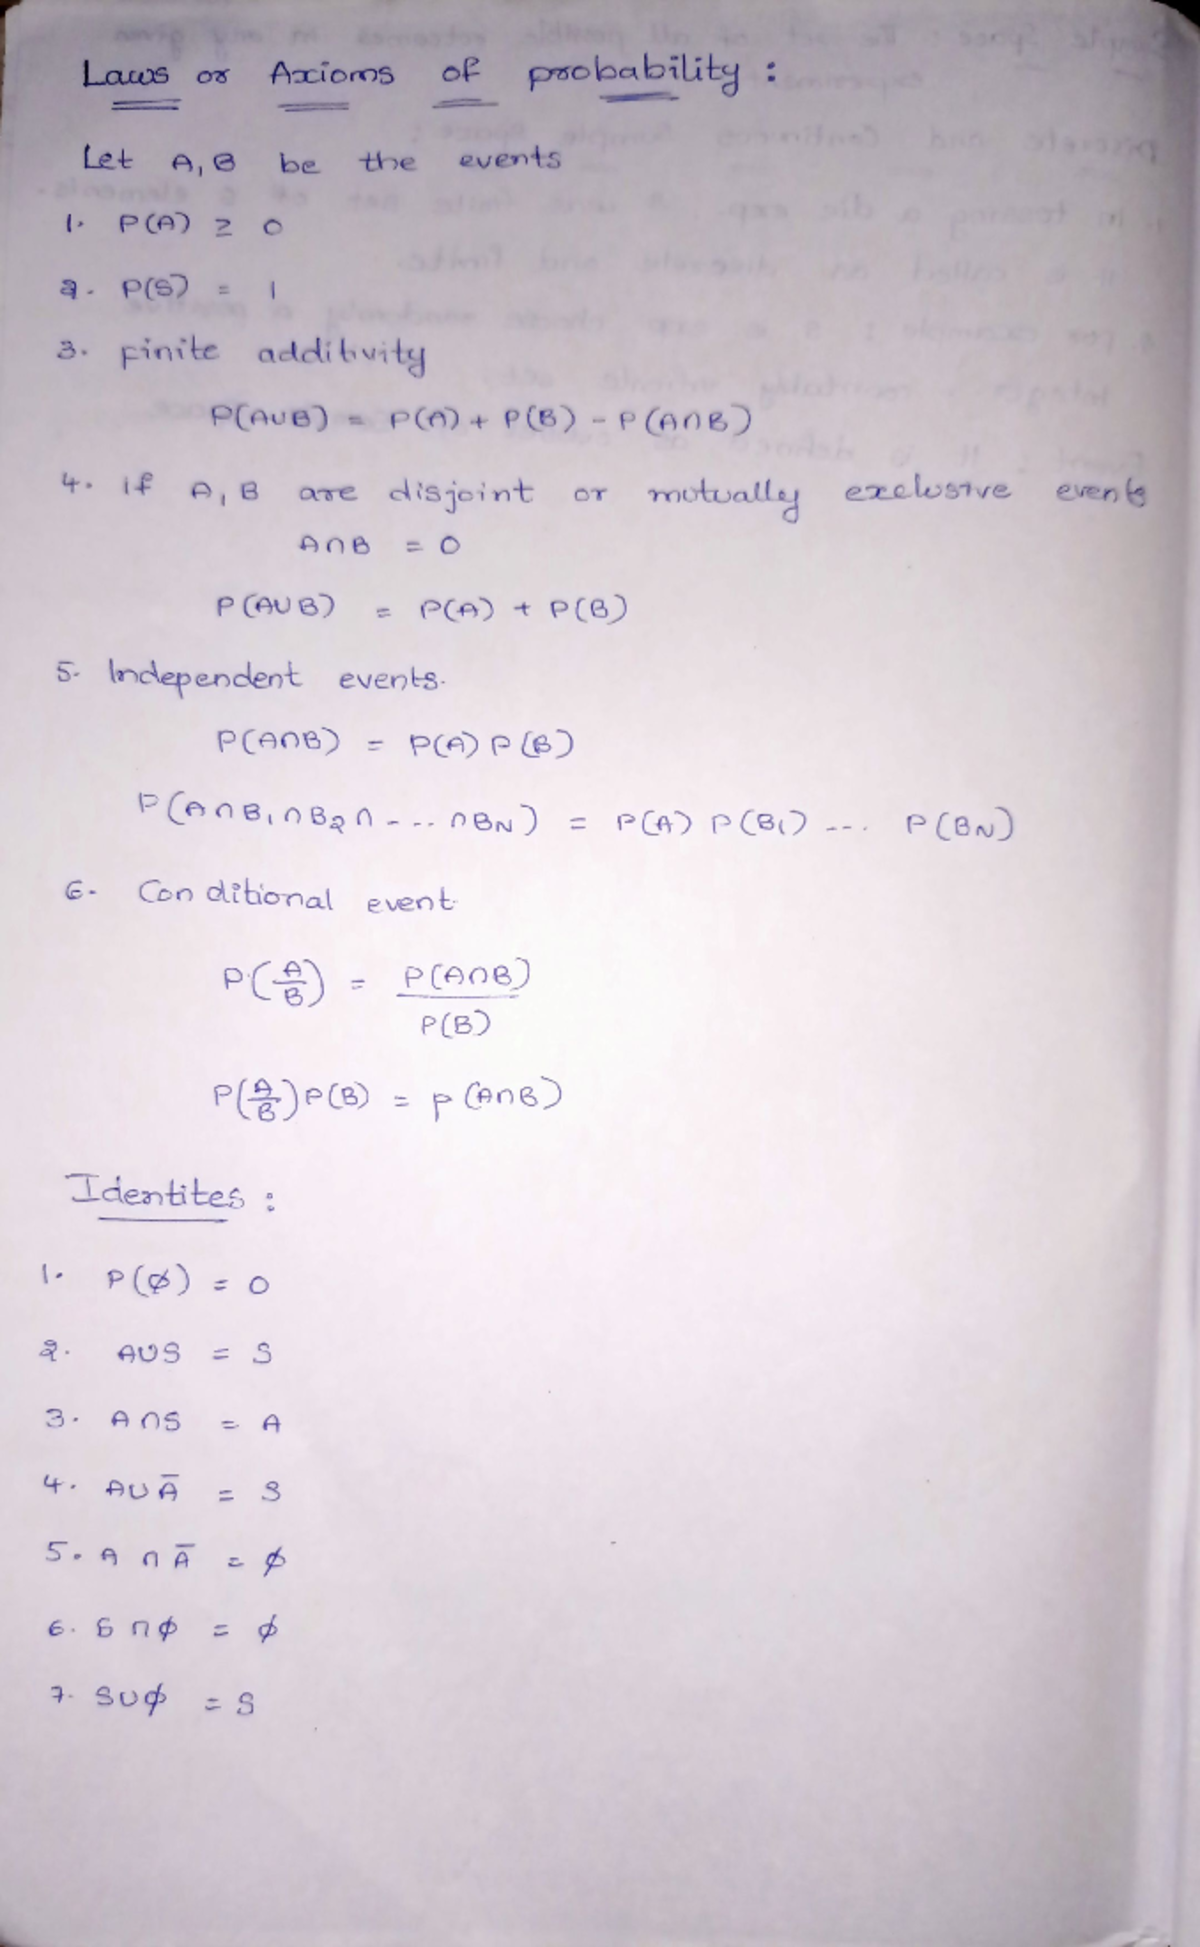 Laws or Axioms of probability :
Let A, B be the events
1. P(A) ≥ 0
2. P(S) = 1
3. Finite additivity
P(A∪B) = P(A) + P(B) - P(A∩B)
4. If A, B are disjoint or mutually exclusive events
A∩B = 0
P(A∪B) = P(A) + P(B)
5. Independent events.
P(A∩B) = P(A) P(B)
P(A∩B₁∩B₂∩-...∩B_N) = P(A) P(B₁) --- P(B_N)
6. Conditional event.
P(A/B) = P(A∩B) / P(B)
P(A/B)P(B) = P(A∩B)
Identites :
1. P(ϕ) = 0
2. A∪S = S
3. A∩S = A
4. A∪Ā = S
5. A∩Ā = ϕ
6. S∩ϕ = ϕ
7. S∪ϕ = S